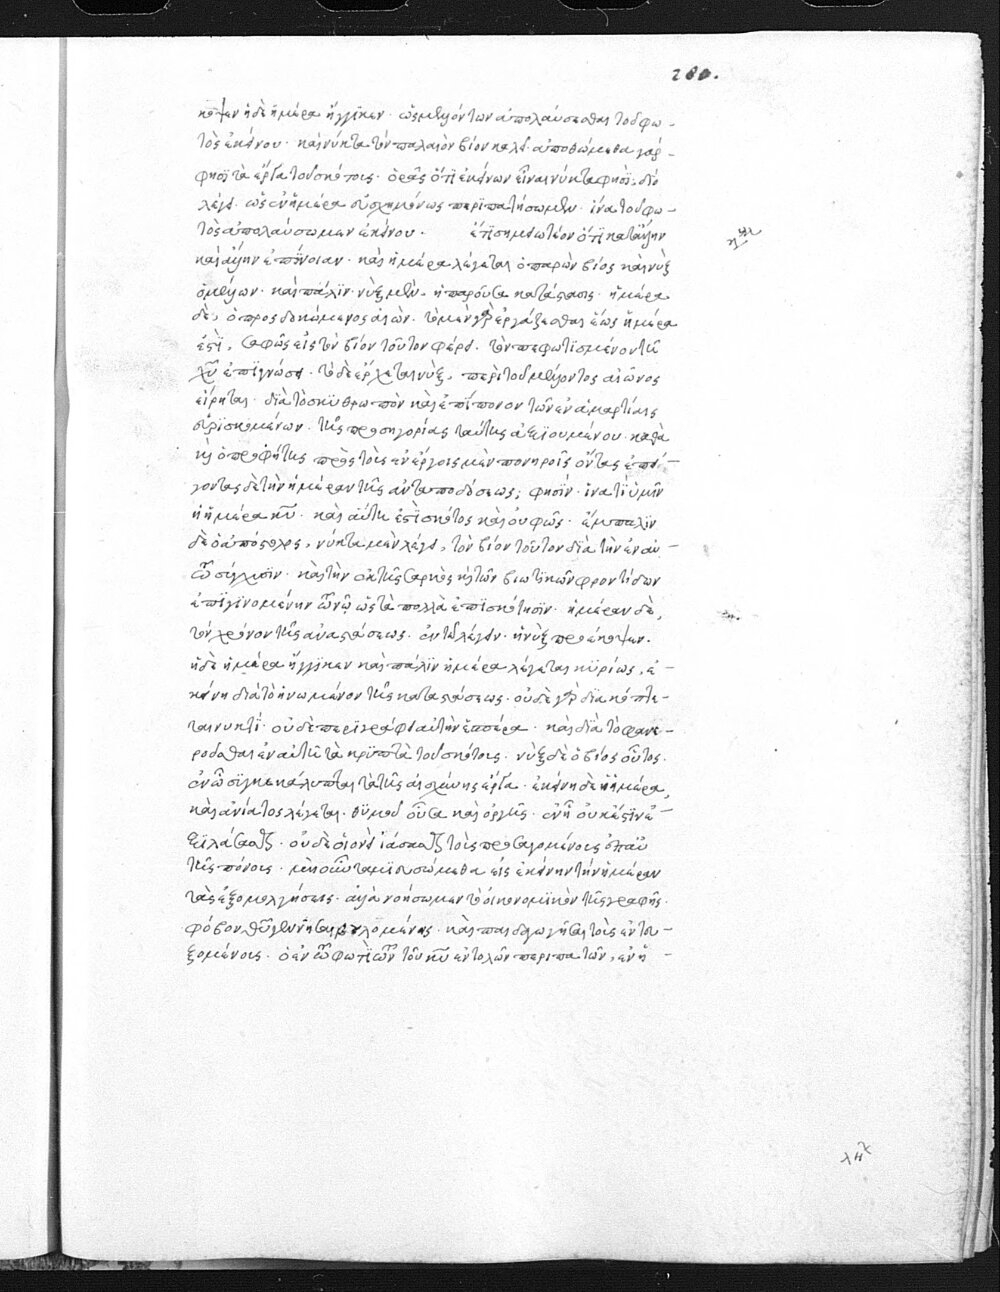 280.
κοψεν ἡ δὲ ἡμέρα ἤγγικεν· ὡς μελλόντων ἀπολαύσεσθαι τοῦ φω-
τὸς ἐκείνου· καὶ νύκτα τὸν παλαιὸν βίον καλεῖ· ἀποθώμεθα γάρ-
φησὶ τὰ ἔργα τοῦ σκότους· ὁρᾶς ὅτι ἐκείνων εἶναι νύκτα φησί; διὸ
λέγει· ὡς ἐν ἡμέρα εὐσχημόνως περιπατήσωμεν· ἵνα τοῦ φω-
τὸς ἀπολαύσωμεν ἐκείνου· ἐπισημειωτέον ὅτι κατ' ἄλλην
καὶ ἄλλην ἐπίνοιαν· καὶ ἡμέρα λέγεται ὁ παρὼν βίος καὶ νὺξ
ὁ μέλλων· καὶ πάλιν νὺξ μὲν, ἡ παροῦσα κατάστασις· ἡμέρα
δὲ, ὁ προσδοκώμενος αἰών· τὸ μὲν γὰρ ἐργάζεσθαι ἕως ἡμέρα
ἐστὶ, σαφῶς εἰς τὸν βίον τοῦτον φέρει· τὸν πεφωτισμένον τῆ
χῦ ἐπιγνώσει· τὸ δὲ ἔρχεται νὺξ, περὶ τοῦ μέλλοντος αἰῶνος
εἴρηται· διὰ τὸ σκυθρωπὸν καὶ ἐπίπονον τῶν ἐν ἁμαρτίαις
εὑρισκομένων· τῆς προσηγορίας ταύτης ἀξιουμένου· καθὰ
κὶ ὁ προφήτης πρὸς τοὺς ἐν ἔργοις μὲν πονηροῖς ὄντας ἐπεί-
γοντας δὲ τὴν ἡμέραν τῆς ἀνταποδόσεως; φησίν· ἵνα τί ὑμῖν
ἡ ἡμέρα κῦ· καὶ αὕτη ἐστὶ σκότος καὶ οὐ φῶς· ἔμπαλιν
δὲ ὁ ἀπόστολος, νύκτα μὲν λέγει, τὸν βίον τοῦτον διὰ τὴν ἐν αὐ-
τῶ σύγχυσιν· καὶ τὴν ἐκ τῆς σαρκὸς κὶ τῶν βιωτικῶν φροντίδων
ἐπιγινομένην τῶ νῶ ὡς τὰ πολλὰ ἐπισκότησιν· ἡμέραν δὲ,
τὸν χρόνον τῆς ἀναστάσεως· ἐν τῶ λέγειν· ἡ νὺξ προέκοψεν·
ἡ δὲ ἡμέρα ἤγγικεν καὶ πάλιν ἡμέρα λέγεται κυρίως, ἐ-
κείνη διὰ τὸ ἡνωμένον τῆς καταστάσεως· οὐδὲ γὰρ διακόπτε-
ται νυκτί· οὐδὲ περιγράφει αὐτὴν ἑσπέρα· καὶ διὰ τὸ φανε-
ροῦσθαι ἐν αὐτῆ τὰ κρυπτὰ τοῦ σκότους· νὺξ δὲ ὁ βίος οὗτος·
ἐν ᾧ συγκεκάλυπται τὰ τῆς αἰσχύνης ἔργα· ἐκείνη δὲ ἡ ἡμέρα,
καὶ ἀνίατος λέγεται· θυμοῦ οὖσα καὶ ὀργῆς· ἐν ἧ οὐκ ἔστιν ἐ-
ξιλάσασθαι· οὐδὲ οἷόν τε ἰάσασθαι τοὺς προσαγομένους
τῆς πόνοις· μὴ οὖν ταμιευσώμεθα εἰς ἐκείνην τὴν ἡμέραν
τὰς ἐξομολγήσεις· ἀλλὰ νοήσωμεν τὸ οἰκονομικὸν τῆς γραφῆς·
φόβον θῦ γεννῆσαι βουλομένης· καὶ παιδαγωγῆσαι τοὺς ἐντευ-
ξομένους· ὁ ἐν τῶ φωτὶ τῶν τοῦ κῦ ἐντολῶν περιπατῶν, ἐν ἡ-